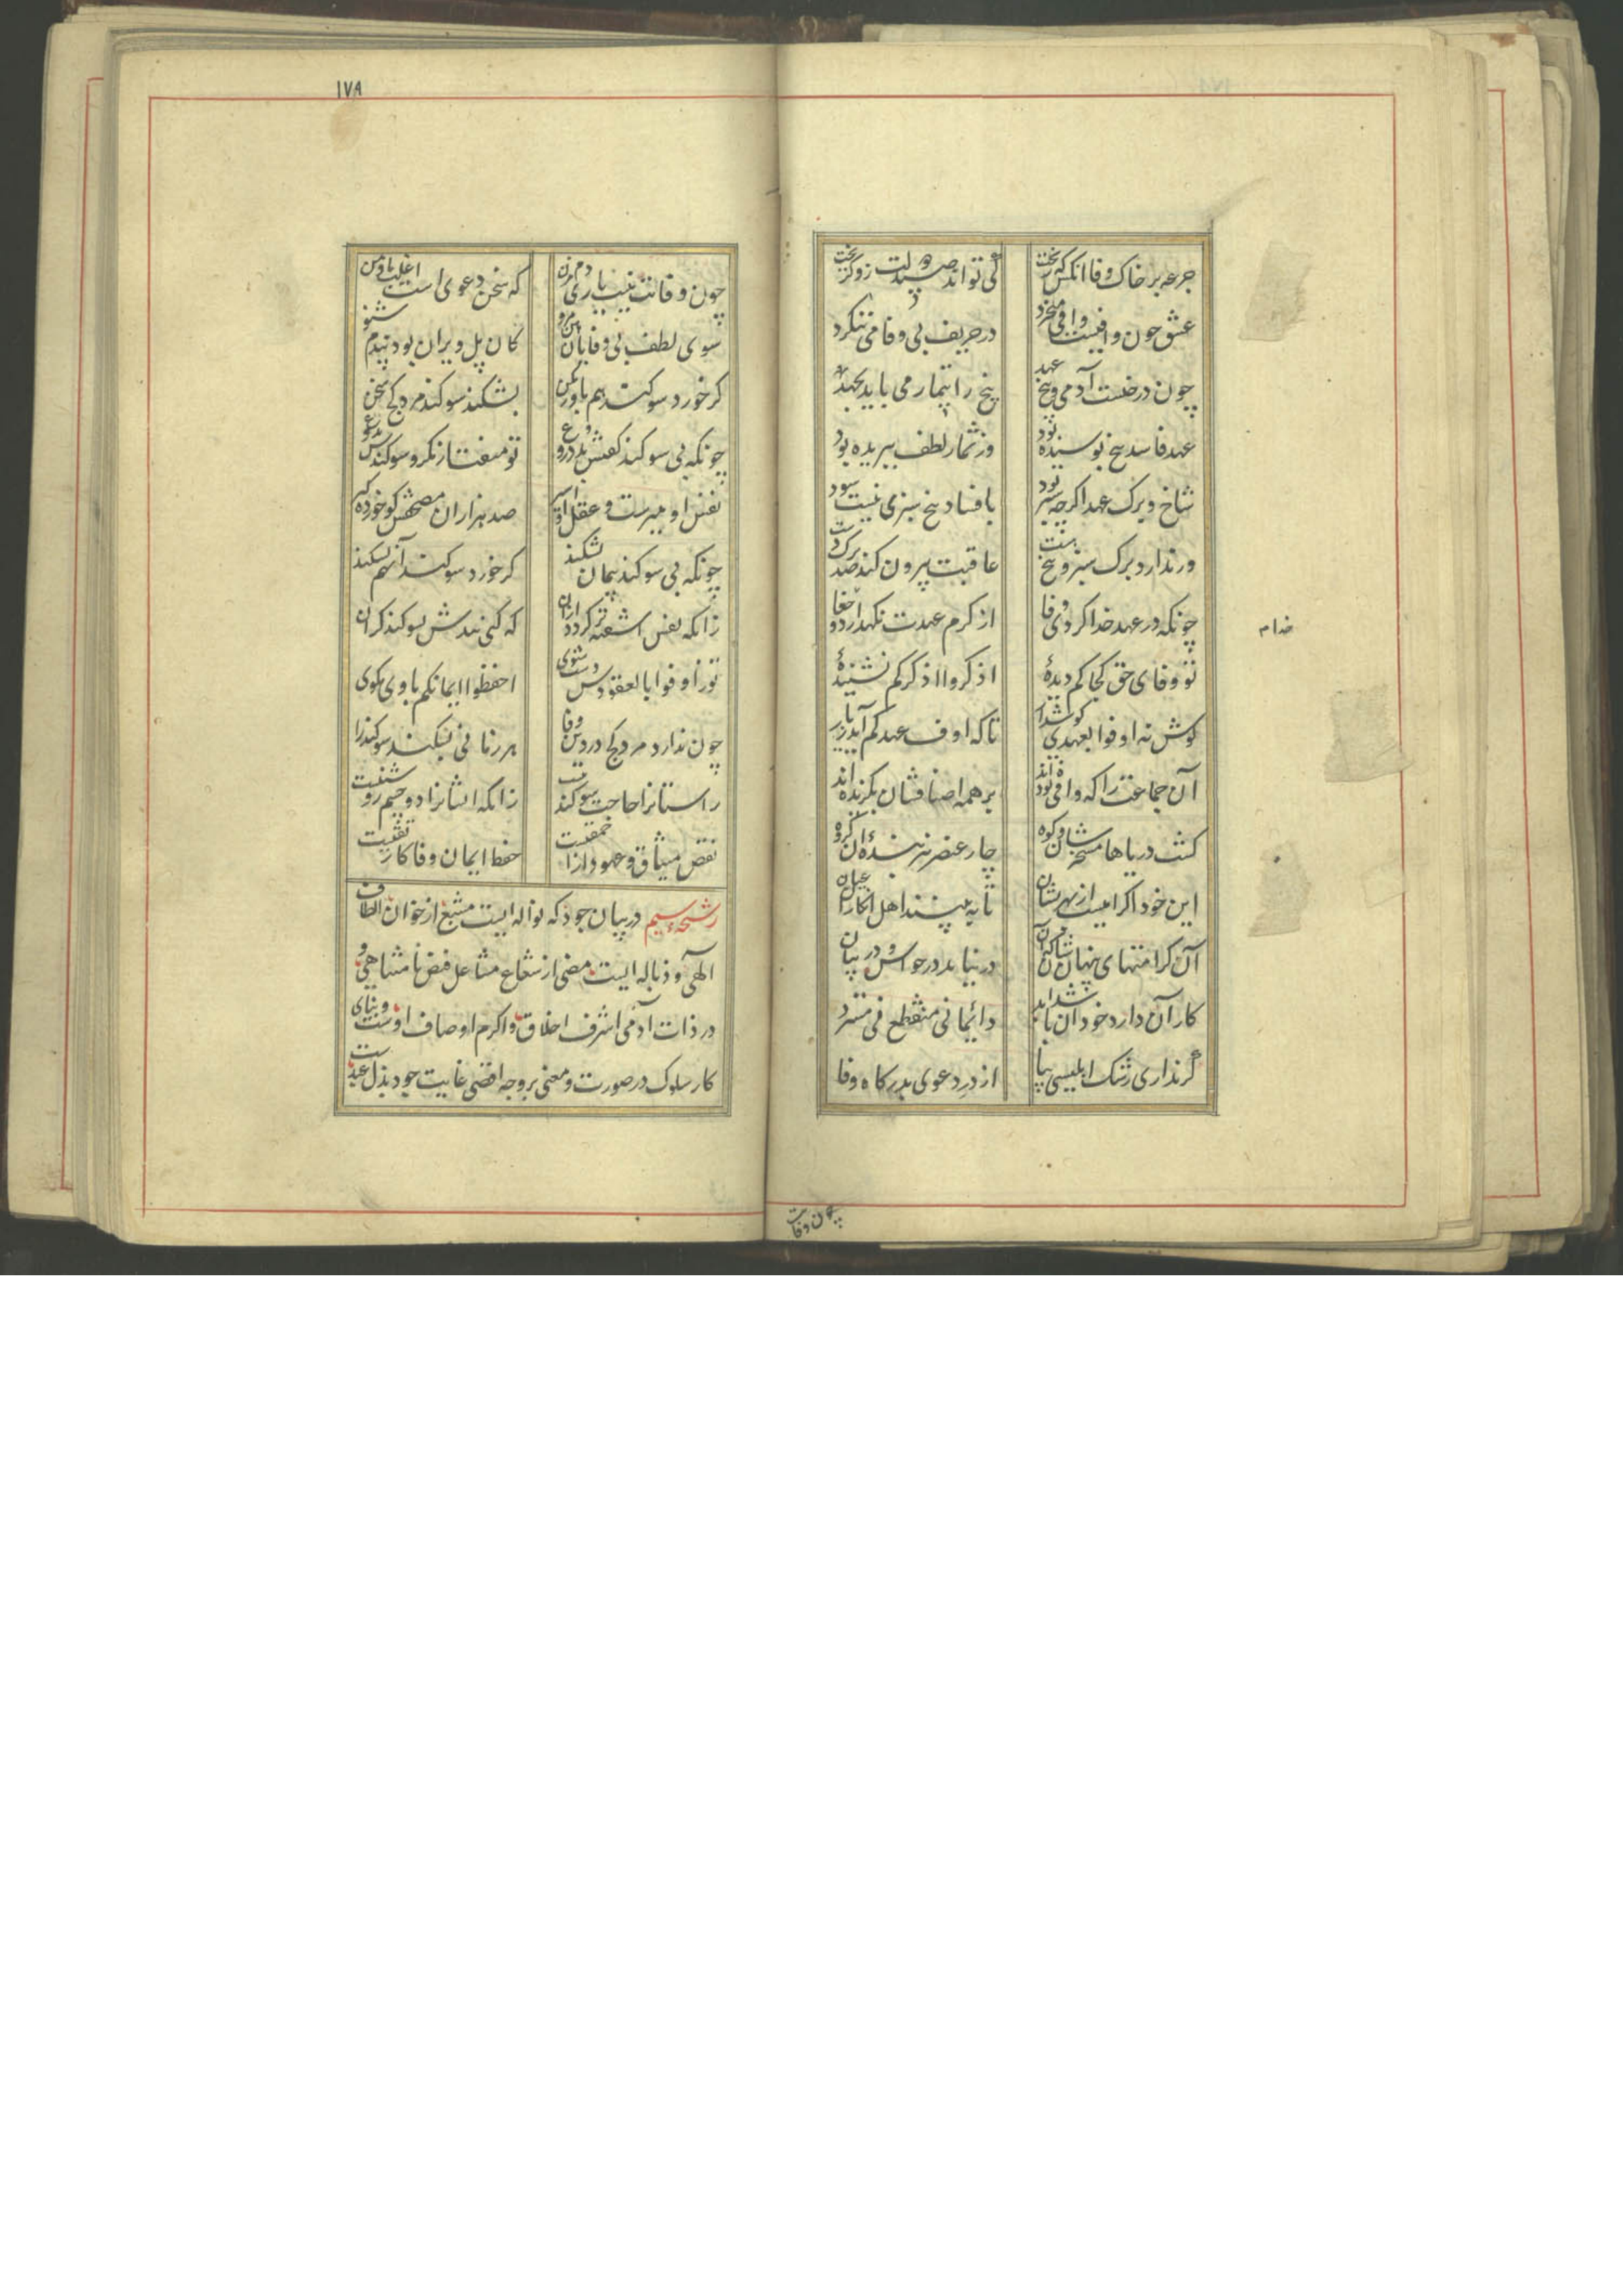 جرعه بر خاک وفا آنکس که ریخت کی تواند صید دولت زو گریخت
عشق چون وافیست وافی میخرد در حریف بی وفا می ننکرد
چون درخست آدمی و بیخ عهد بیخ را تیمار می باید بجهد
عهد فاسد بیخ پوسیده بود وز ثمار لطف ببریده بود
شاخ و برک عهد اکرچه سبز بود با فساد بیخ سبزی نیست سود
ور ندارد برک سبز و بیخ هست عاقبت بیرون کند صد برک دست
چونکه در عهد خدا کردی وفا از کرم عهدت نکهدارد خدا
تو وفای حق کجا کم دیدهٔ اذکروا اذکرکم نشنیدهٔ
کوش نه اوفوا بعهدی کوشدار تا که اوف عهدکم آید ز یار
آن جماعت را که وافی بوده اند بر همه اصنافشان بکزیده اند
کشت دریاها مسخرشان و کوه چار عنصر نیز بندهٔ آن کروه
این خود اکرامیست از بهر نشان تا ببینند اهل انکار آن عیان
آن کرامتهای پنهانشان که آن در نیاید در حواس و در بیان
کار آن دارد خود آن باشد ابد دائما نی منقطع نی مسترد
گر نداری رشک ابلیسی بیا از در دعوی بدرکاه وفا
خدام
چون وفات
۱۷۸
چون وفاتت نیست باری دم مزن که سخن دعوی است اغلب ما و من
سوی لطف بی وفایان هین مرو کان پل ویران بود نیکو شنو
کر خورد سوکند هم باور مکن بشکند سوکند مرد کج سخن
چونکه بی سوکند کفتش بد دروغ تو میفت از مکر و سوکندش بدوغ
نفس او میرست و عقل او اسیر صد هزاران مصحفش کو خورده کیر
چونکه بی سوکند پیمان بشکند کر خورد سوکند آن هم بشکند
زانکه نفس آشفته تر کردد از آن که کنی بندش بسوکند کران
تو ز اوفوا بالعقود دست شوی احفظوا ایمانکم با وی مکوی
چون ندارد مرد کج در دین وفا هر زمانی بشکند سوکند را
راستانرا حاجت سوکند نیست زانکه ایشانرا دو چشم روشنیست
نقض میثاق و عهود از احمقیست حفظ ایمان و وفا کار تقیست
رشحهٔ سیم در بیان جود که نواله ایست مشبع از خوان الطاف
الهی و ذباله ایست مضی از شعاع مشاعل فیض نامتناهی و
در ذات آدمی اشرف اخلاق و اکرم اوصاف اوست و بنای
کار سلوک در صورت و معنی بروجه اقصی غایت جود بذل